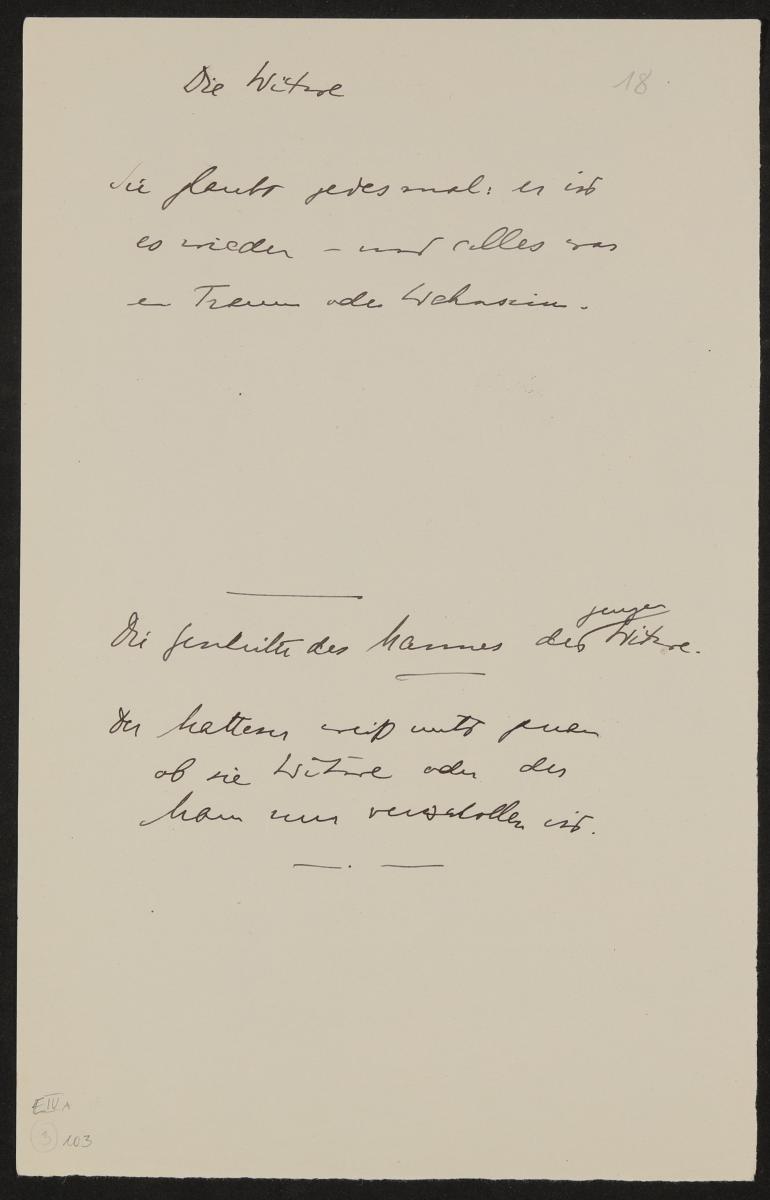 Die Witwe
18
Sie glaubt jedesmal: er ist
es wieder – und alles war
ein Traum oder Wahnsinn.
jungen
Die Geschichte des Mannes der Witwe.
Der weiß nicht genau
ob sie Witwe oder der
Mann nur verschollen ist.
E IV A
3 103